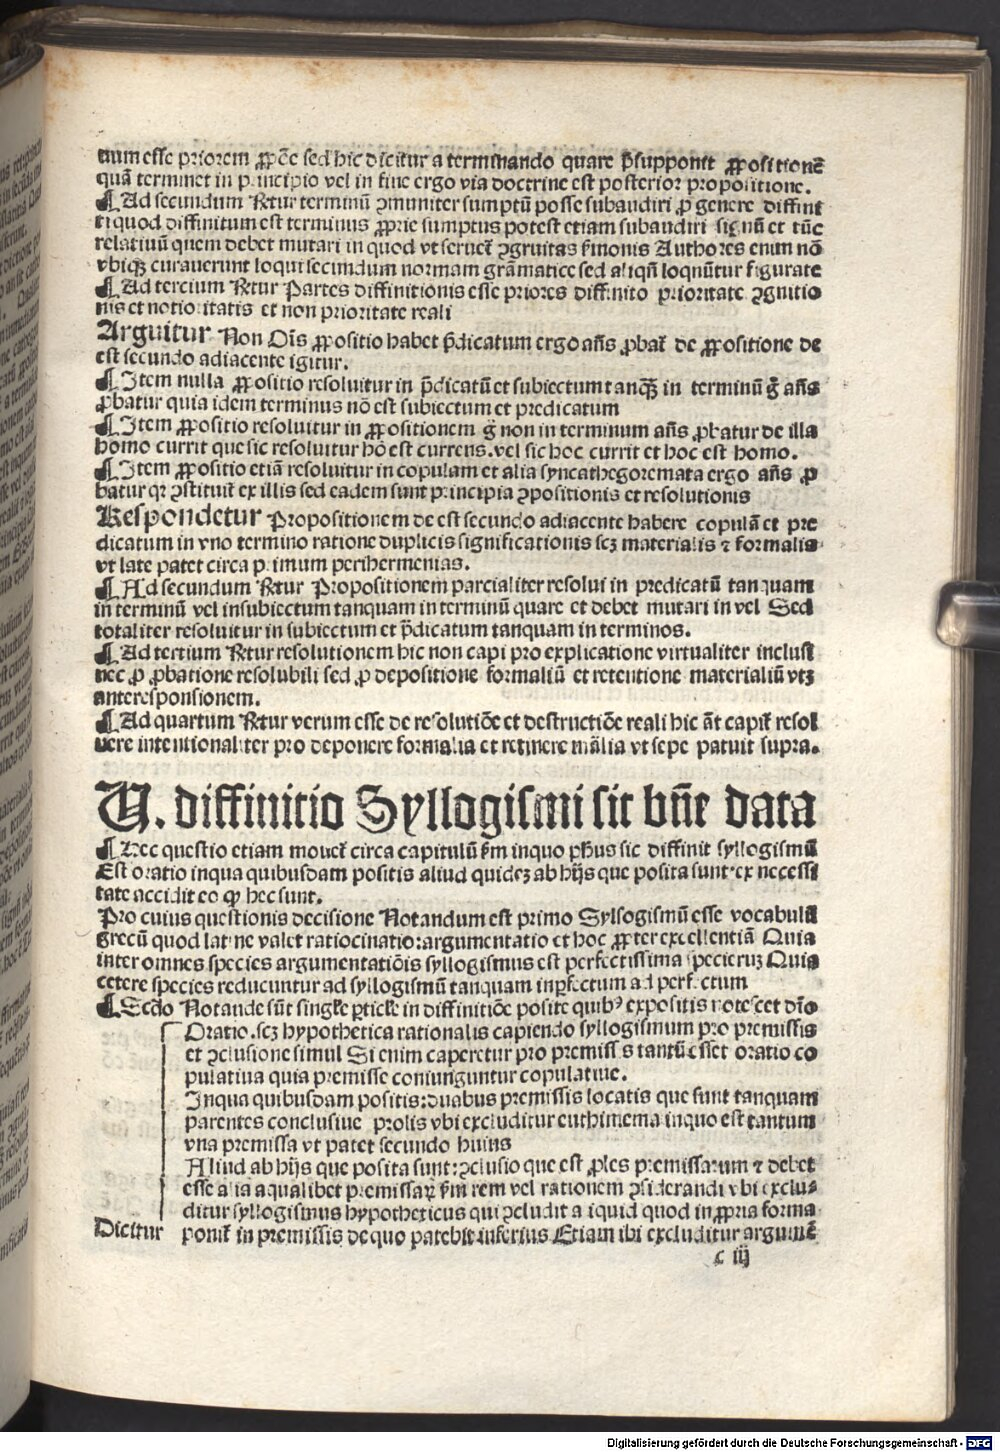 num esse priorem ꝓpõe sed hic dicitur a terminando quare p̃supponit ꝓpositionẽ
quã terminet in principio vel in fine ergo via doctrine est posterior propositione.
¶ Ad secundum Rr̃tur terminũ ꝯmuniter sumptũ posse subaudiri ꝓ genere diffini
ti quod diffinitum est terminus ꝓprie sumptus potest etiam subaudiri signũ et tũc
relatiuũ quem debet mutari in quod vt seruet̃ ꝯgruitas s̃monis Authores enim nõ
vbiqꝫ curauerunt loqui secundum normam grãmatice sed aliqñ loqnũtur figurate
¶ Ad tercium Rr̃tur Partes diffinitionis esse priores diffinito prioritate ꝯgnitio
nis et notioritatis et non prioritate reali
Arguitur Non Oĩs ꝓpositio habet p̃dicatum ergo añs ꝓbat̃ de ꝓpositione de
est secundo adiacente igitur.
¶ Item nulla ꝓpositio resoluitur in p̃dicatũ et subiectum tanqꝫ in terminũ g̃ añs
ꝓbatur quia idem terminus nõ est subiectum et predicatum
¶ Item ꝓpositio resoluitur in ꝓpositionem g̃ non in terminum añs ꝓbatur de illa
homo currit que sic resoluitur hõ est currens. vel sic hoc currit et hoc est homo.
¶ Item ꝓpositio etiã resoluitur in copulam et alia syncathegoremata ergo añs ꝓ
batur qꝛ ꝯstituit̃ ex illis sed eadem sunt principia ꝯpositionis et resolutionis
Respondetur Propositionem de est secundo adiacente habere copulã et pre
dicatum in vno termino ratione duplicis significationis scꝫ materialis ⁊ formalis
vt late patet circa primum perihermenias.
¶ Ad secundum Rr̃tur Propositionem parcialiter resolui in predicatũ tanquam
in terminũ vel insubiectum tanquam in terminũ quare et debet mutari in vel Sed
totaliter resoluitur in subiectum et p̃dicatum tanquam in terminos.
¶ Ad tertium Rr̃tur resolutionem hic non capi pro explicatione virtualiter inclusi
nec ꝓ ꝓbatione resolubili sed ꝓ depositione formaliũ et retentione materialiũ vtꝫ
anteresponsionem.
¶ Ad quartum Rr̃tur verum esse de resolutiõe et destructiõe reali hic ãt capit̃ resol
uere intentionaliter pro deponere formalia et retinere mãlia vt sepe patuit supra.
U. diffinitio Syllogismi sit bñe data
¶ Hec questio etiam mouet̃ circa capitulũ s̃m inquo ph̃us sic diffinit syllogismũ
Est oratio inqua quibusdam positis aliud quideꝫ ab hijs que posita sunt ex necessi
tate accidit eo ꝙ hec sunt.
Pro cuius questionis decisione Notandum est primo Sylsogismũ esse vocabulũ
grecũ quod latine valet ratiocinatio: argumentatio et hoc ꝓpter excellentiã Quia
inter omnes species argumentatiõis syllogismus est perfectissima specieruꝫ Quia
cetere species reducuntur ad syllogismũ tanquam inperfectum ad perfectum
¶ Scd̃o Notande sũt singl̃e ꝑticl̃e in diffinitiõe posite quibꝰ expositis notescet dc̃o
Oratio. scꝫ hypothetica rationalis capiendo syllogismum pro premissis
et ꝯclusione simul Si enim caperetur pro premissis tantũ esset oratio co
pulatiua quia premisse coniunguntur copulatiue.
Inqua quibusdam positis: duabus premissis locatis que sunt tanquam
parentes conclusiue prolis vbi excluditur enthimema inquo est tantum
vna premissa vt patet secundo huius
Aliud ab hijs que posita sunt: ꝯclusio que est ꝓles premissarum ⁊ debet
esse alia aqualibet premissaꝝ s̃m rem vel rationem ꝯsiderandi vbi exclu-
ditur syllogismus hypotheticus qui ꝯcludit aliquid quod in ꝓpria forma
Dicitur ponit̃ in premissis de quo patebit inferius Etiam ibi excluditur argumẽ
c iij
Digitalisierung gefördert durch die Deutsche Forschungsgemeinschaft - DFG